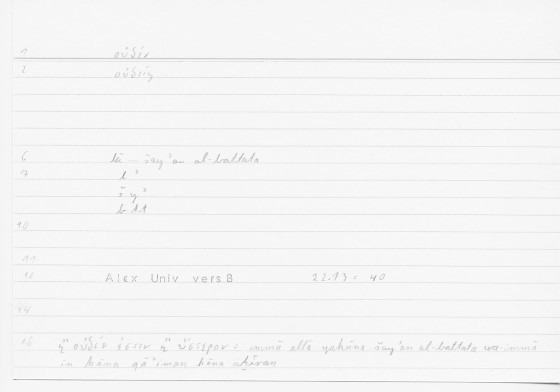 1 οὐδέν
2 οὐδείς
6 lā – šay'an al-battata
7 l '
š y '
b t t
10
11
10 Alex Univ vers B 22.13 = 40
14
16 ἢ οὐδέν ἐστιν ἢ ὕστερον = immā allā yakūna šay'an al-battata wa-immā
in kāna qā'iman kāna aḫīran